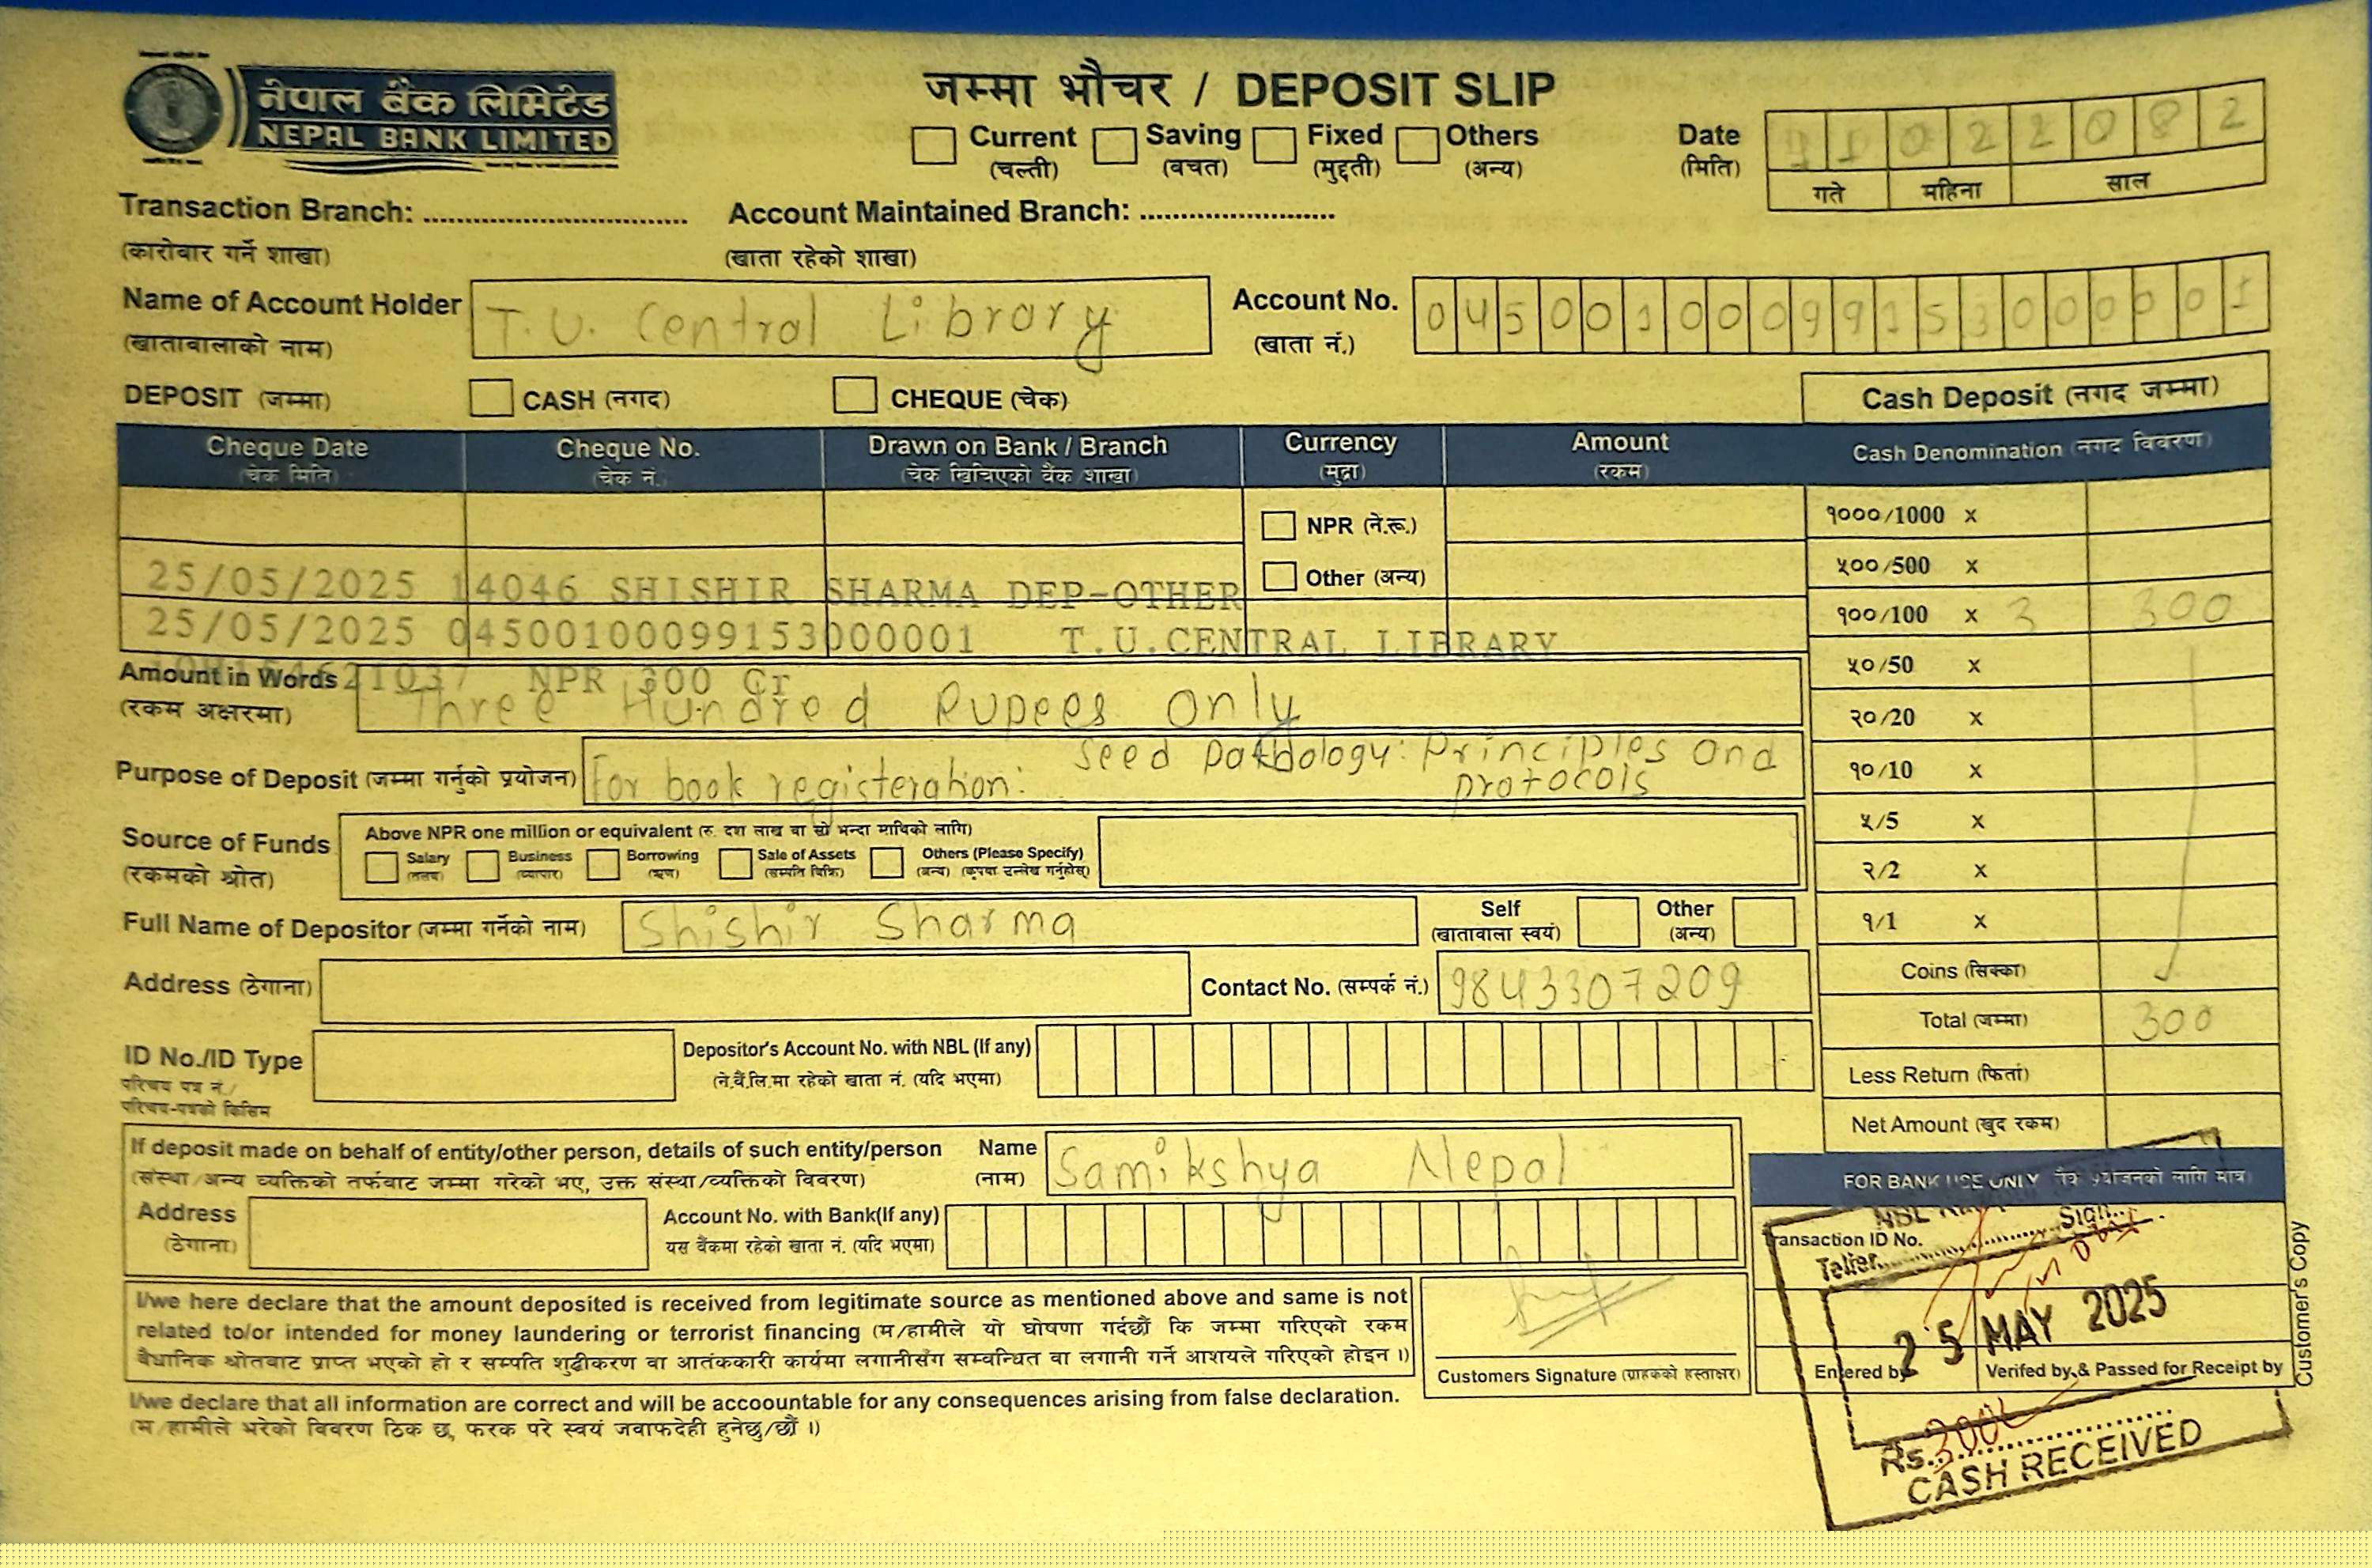 नेपाल बैंक लिमिटेड
NEPAL BANK LIMITED
जम्मा भौचर / DEPOSIT SLIP
Current Saving Fixed Others
(चल्ती) (बचत) (मुद्दती) (अन्य)
Date 11022082
(मिति)
गते महिना साल
Transaction Branch: ............................ Account Maintained Branch: ........................
(कारोबार गर्ने शाखा) (खाता रहेको शाखा)
Name of Account Holder T.U. Central Library Account No. 04500100099153000001
(खातावालाको नाम) (खाता नं.)
DEPOSIT (जम्मा) CASH (नगद) CHEQUE (चेक) Cash Deposit (नगद जम्मा)
Cheque Date Cheque No. Drawn on Bank / Branch Currency Amount Cash Denomination (नगद विवरण)
(चेक मिति) (चेक नं.) (चेक खिचिएको बैंक शाखा) (मुद्रा) (रकम)
NPR (ने.रू.) १०००/1000 x
Other (अन्य) ५००/500 x
25/05/2025 14046 SHISHIR SHARMA DEP-OTHER
१००/100 x 3 300
25/05/2025 04500100099153000001 T.U.CENTRAL LIBRARY
21037 NPR 300 Cr
५०/50 x
Amount in Words Three Hundred Rupees Only
(रकम अक्षरमा)
२०/20 x
Purpose of Deposit (जम्मा गर्नुको प्रयोजन) For book registeration: Seed Pathology: Principles and
protocols
१०/10 x
५/5 x
Source of Funds Above NPR one million or equivalent (रु. दश लाख वा सो भन्दा माथिको लागि)
(रकमको श्रोत) Salary (तलब) Business (व्यापार) Borrowing (ऋण) Sale of Assets (सम्पति बिक्रि) Others (Please Specify) (अन्य) (कृपया उल्लेख गर्नुहोस्)
२/2 x
Full Name of Depositor (जम्मा गर्नेको नाम) Shishir Sharma Self Other
(खातावाला स्वयं) (अन्य)
१/1 x
Coins (सिक्का)
Address (ठेगाना) Contact No. (सम्पर्क नं.) 9843307209
Total (जम्मा) 300
ID No./ID Type Depositor's Account No. with NBL (If any)
परिचय पत्र नं./ (ने.बैं.लि.मा रहेको खाता नं. (यदि भएमा)
परिचय-पत्रको किसिम
Less Return (फिर्ता)
Net Amount (खुद रकम)
If deposit made on behalf of entity/other person, details of such entity/person Name Samikshya Nepal
(संस्था/अन्य व्यक्तिको तर्फबाट जम्मा गरेको भए, उक्त संस्था/व्यक्तिको विवरण) (नाम)
FOR BANK USE ONLY
Address Account No. with Bank(If any)
(ठेगाना) यस बैंकमा रहेको खाता नं. (यदि भएमा)
NBL
Transaction ID No.
Teller Sign
25 MAY 2025
I/we here declare that the amount deposited is received from legitimate source as mentioned above and same is not
related to/or intended for money laundering or terrorist financing (म/हामीले यो घोषणा गर्दछौं कि जम्मा गरिएको रकम
बैधानिक श्रोतबाट प्राप्त भएको हो र सम्पति शुद्धीकरण वा आतंककारी कार्यमा लगानीसँग सम्वन्धित वा लगानी गर्ने आशयले गरिएको होइन ।)
Customers Signature (ग्राहकको हस्ताक्षर)
Entered by Verifed by & Passed for Receipt by
Customer's Copy
I/we declare that all information are correct and will be accoountable for any consequences arising from false declaration.
(म/हामीले भरेको विवरण ठिक छ, फरक परे स्वयं जवाफदेही हुनेछु/छौं ।)
Rs. 300/-
CASH RECEIVED